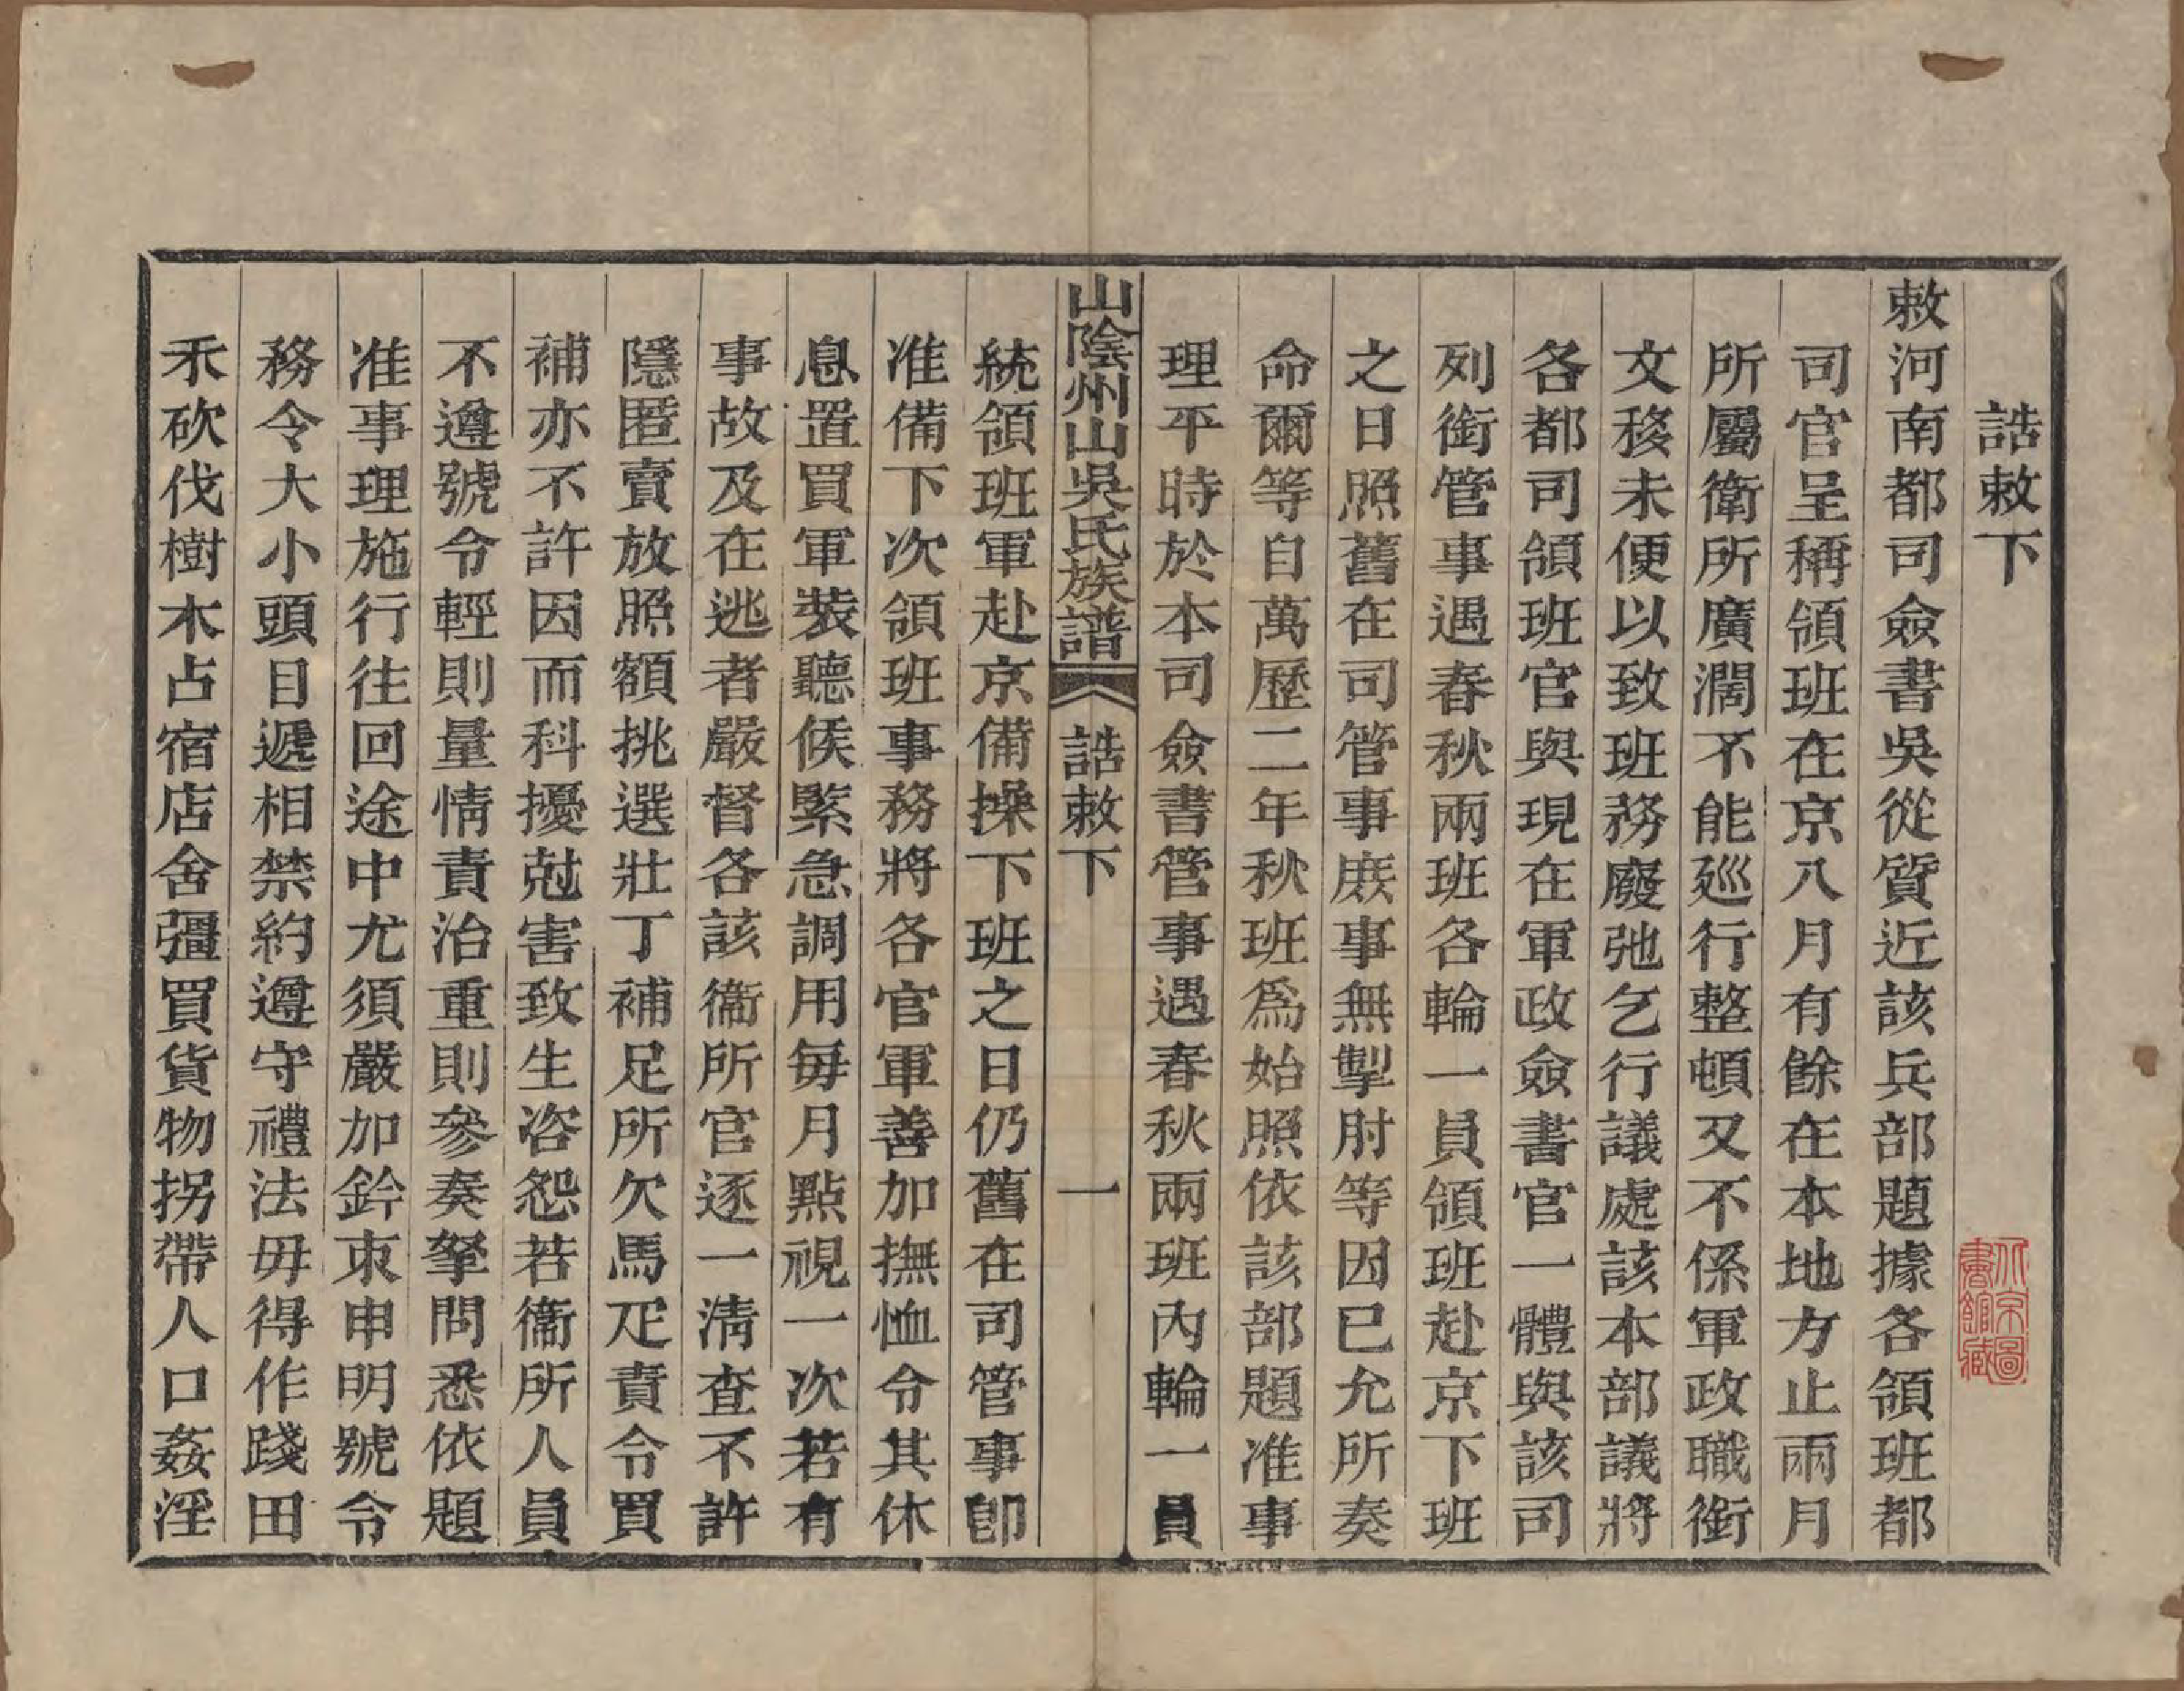 誥敕下
敕河南都司僉書吳從質近該兵部題據各領班都
司官呈稱領班在京八月有餘在本地方止兩月
所屬衛所廣濶不能廵行整頓又不係軍政職銜
文移未便以致班務廢弛乞行議處該本部議將
各都司領班官與現在軍政僉書官一體與該司
列銜管事遇春秋兩班各輪一員領班赴京下班
之日照舊在司管事庶事無掣肘等因已允所奏
命爾等自萬歷二年秋班爲始照依該部題准事
理平時於本司僉書管事遇春秋兩班內輪一員
山陰州山吳氏族譜
誥敕下
一
統領班軍赴京備操下班之日仍舊在司管事卽
准備下次領班事務將各官軍善加撫恤令其休
息置買軍裝聽候緊急調用每月點視一次若有
事故及在逃者嚴督各該衞所官逐一清查不許
隱匿賣放照額挑選壯丁補足所欠馬疋責令買
補亦不許因而科擾尅害致生咨怨若衞所人員
不遵號令輕則量情責治重則參奏拏問悉依題
准事理施行往回途中尤須嚴加鈐束申明號令
務令大小頭目遞相禁約遵守禮法毋得作踐田
禾砍伐樹木占宿店舍彊買貨物拐帶人口姦淫
北京圖
書館藏